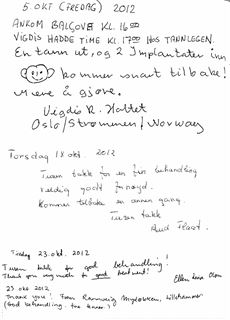 5. OKT (FREDAG) 2012
ANKOM BALÇOVE KL. 16⁰⁰
VIGDIS HADDE TIME KL. 17⁰⁰ HOS TANNLEGEN.
En tann ut, og 2 Implantater inn
kommer snart tilbake!
Mere å gjøre.
Vigdis R.
Oslo/Strømmen/Norway
Torsdag 18 okt. 2012
Tusen takk for en fin behandling
veldig godt fornøyd.
Kommer tilbake en annen gang.
Tusen takk
Tirsdag 23. okt. 2012
Tusen takk for god behandling!
Thank you very much for good treatment!
23 okt 2012
Thank you! From Rannveig Lillehammer
(God behandling. Tne timer)